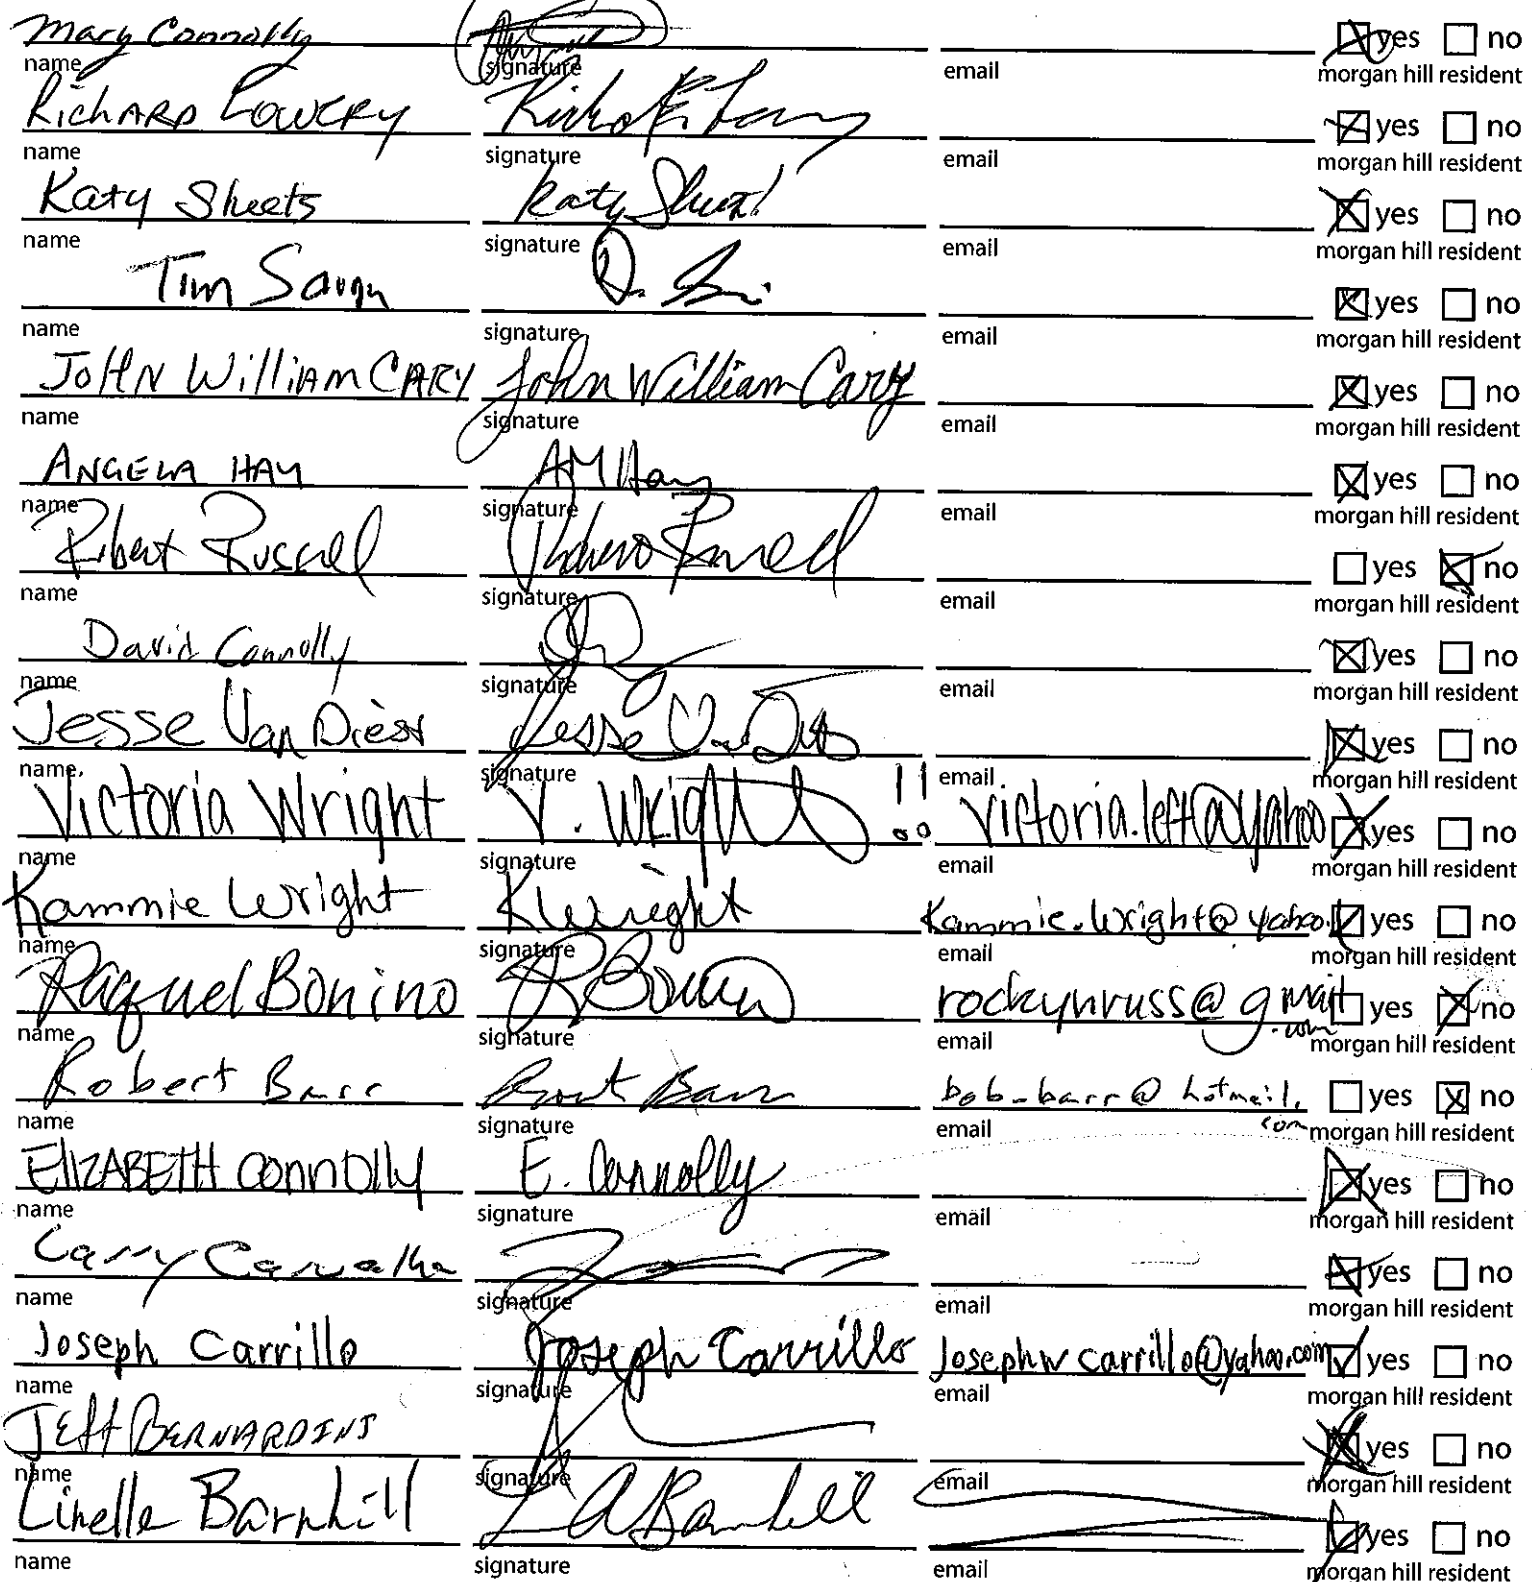 Mary Connolly yes no
name signature email morgan hill resident
Richard Lowery yes no
name signature email morgan hill resident
Katy Sheets Katy Sheets yes no
name signature email morgan hill resident
Tim yes no
name signature email morgan hill resident
John William Cary John William Cary yes no
name signature email morgan hill resident
ANGELA HAY AM Hay yes no
name signature email morgan hill resident
Robert Russell yes no
name signature email morgan hill resident
David Connolly yes no
name signature email morgan hill resident
Jesse Van Diest Jesse yes no
name signature email morgan hill resident
Victoria Wright V. Wright !! victoria.left@yahoo yes no
name signature email morgan hill resident
Kammie Wright K Wright Kammie.wright@yahoo. yes no
name signature email morgan hill resident
Raquel Bonino rockynruss@gmail yes no
.com
name signature email morgan hill resident
Robert Barr bob-barr@hotmail. yes no
com
name signature email morgan hill resident
ELIZABETH CONNOLLY E. Connolly yes no
name signature email morgan hill resident
Larry Carvalho yes no
name signature email morgan hill resident
Joseph Carrillo Joseph Carrillo Josephwcarrillo@yahoo.com yes no
name signature email morgan hill resident
Jeff BERNARDINI yes no
name signature email morgan hill resident
Linelle Barnhill L A Barnhill yes no
name signature email morgan hill resident